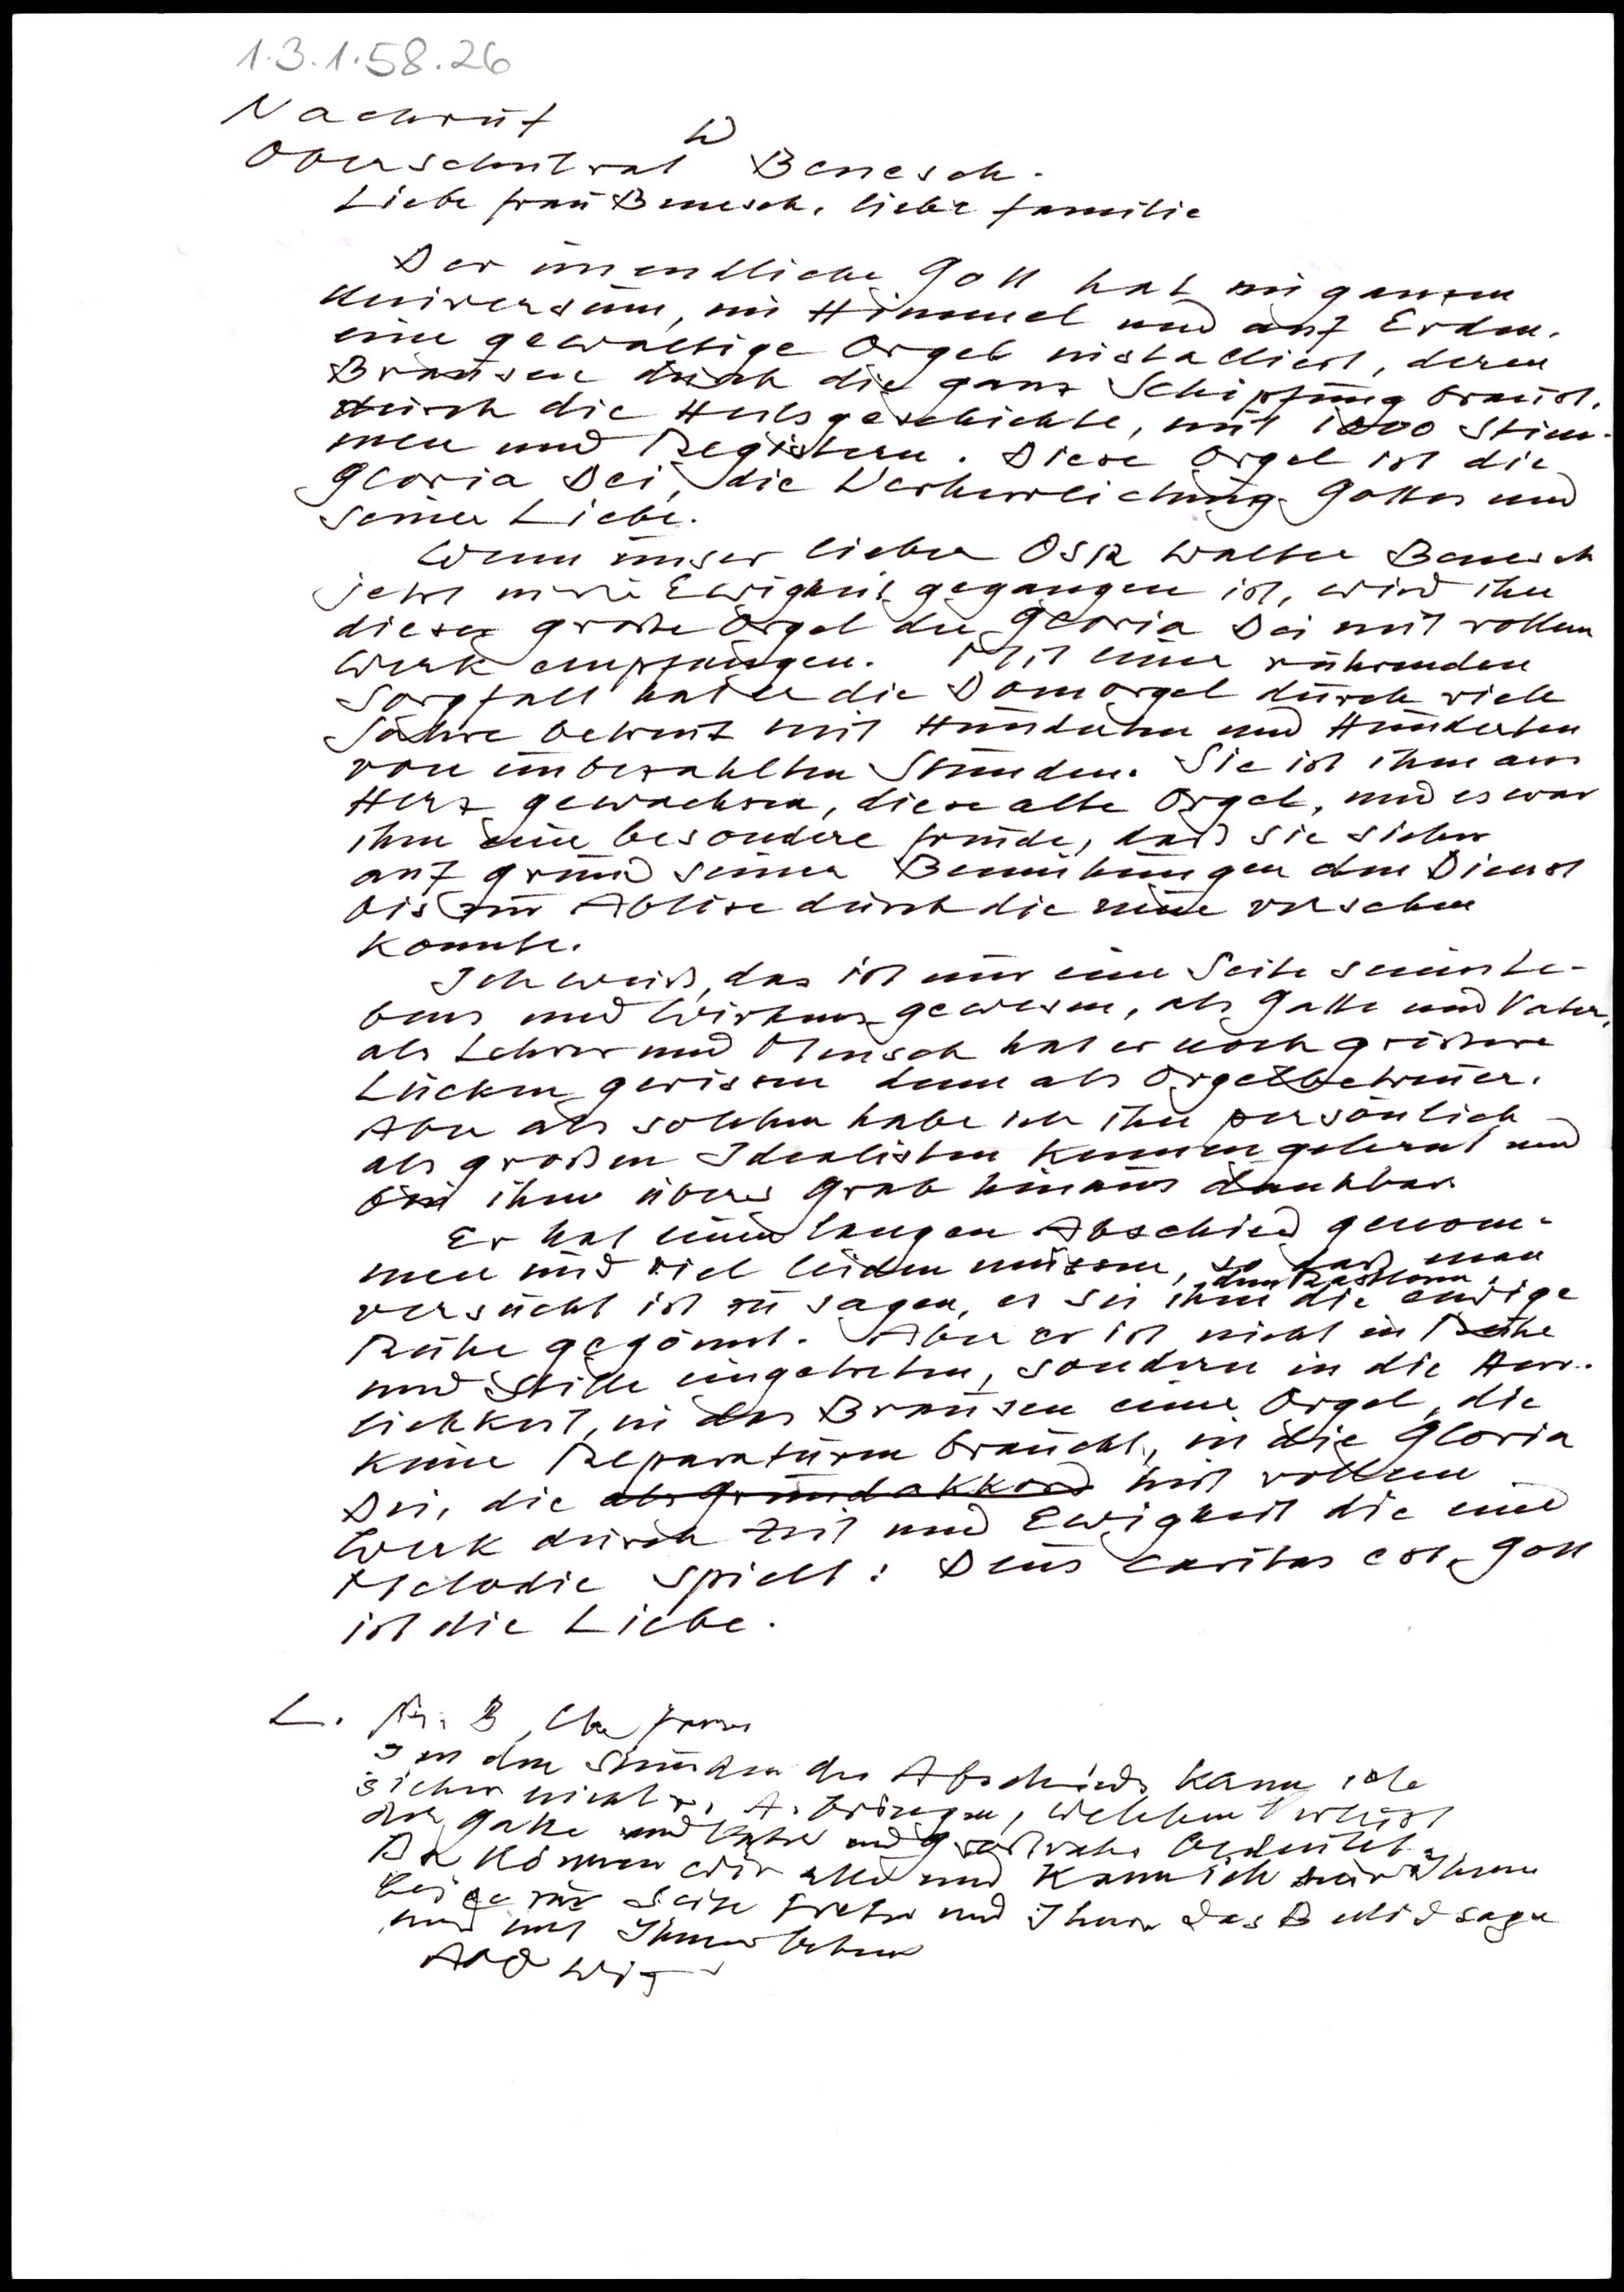 1.3.1.58.26
Nachruf
Oberschulrat W Benesch.
Liebe Frau Benesch, liebe Familie
Der unendliche Gott hat im ganzen
Universum, im Himmel und auf Erden,
eine gewaltige Orgel installiert, deren
Brausen durch die ganz Schöpfung braust,
durch die Heilsgeschichte, mit 1000 Stim-
men und Registern. Diese Orgel ist die
Gloria Dei, die Verherrlichung Gottes und
seiner Liebe.
Wenn unser lieber OSR Walter Benesch
jetzt in die Ewigkeit gegangen ist, wird ihn
diese große Orgel der Gloria Dei mit vollem
Werk empfangen. Mit einer rührenden
Sorgfalt hat er die Domorgel durch viele
Jahre betreut mit Hunderten und Hunderten
von unbezahlten Stunden. Sie ist ihm ans
Herz gewachsen, diese alte Orgel, und es war
ihm eine besondere Freude, daß sie sicher
auf Grund seiner Bemühungen den Dienst
bis zur Ablöse durch die neue versehen
konnte.
Ich weiß, das ist nur eine Seite seines Le-
bens und Wirkens gewesen, als Gatte und Vater,
als Lehrer und Mensch hat er noch größere
Lücken gerissen denn als Orgelbetreuer.
Aber als solchen habe ich ihn persönlich
als großen Idealisten kennengelernt und
bin ihm übers Grab hinaus dankbar.
Er hat einen langen Abschied genom-
men und viel leiden müssen, so daß man
versucht ist zu sagen, es sei ihm, dem Rastlosen, die ewige
Ruhe gegönnt. Aber er ist nicht in Ruhe
und Stille eingetreten, sondern in die Herr-
lichkeit, in das Brausen einer Orgel, die
keine Reparaturen braucht, in die Gloria
Dei, die als Grundakkord mit vollem
Werk durch Zeit und Ewigkeit die eine
Melodie spielt: Deus caritas est, Gott
ist die Liebe.
L. Fr. B,
In den Stunden des Abschieds kann ich
sicher nicht z. A. bringen, welchen Verlust
der Gatte und Vater und Großvater bedeutet.
Da können wir alle und kann ich nur Ihnen
zur Seite treten und Ihnen das B sagen
und mit Ihnen beten